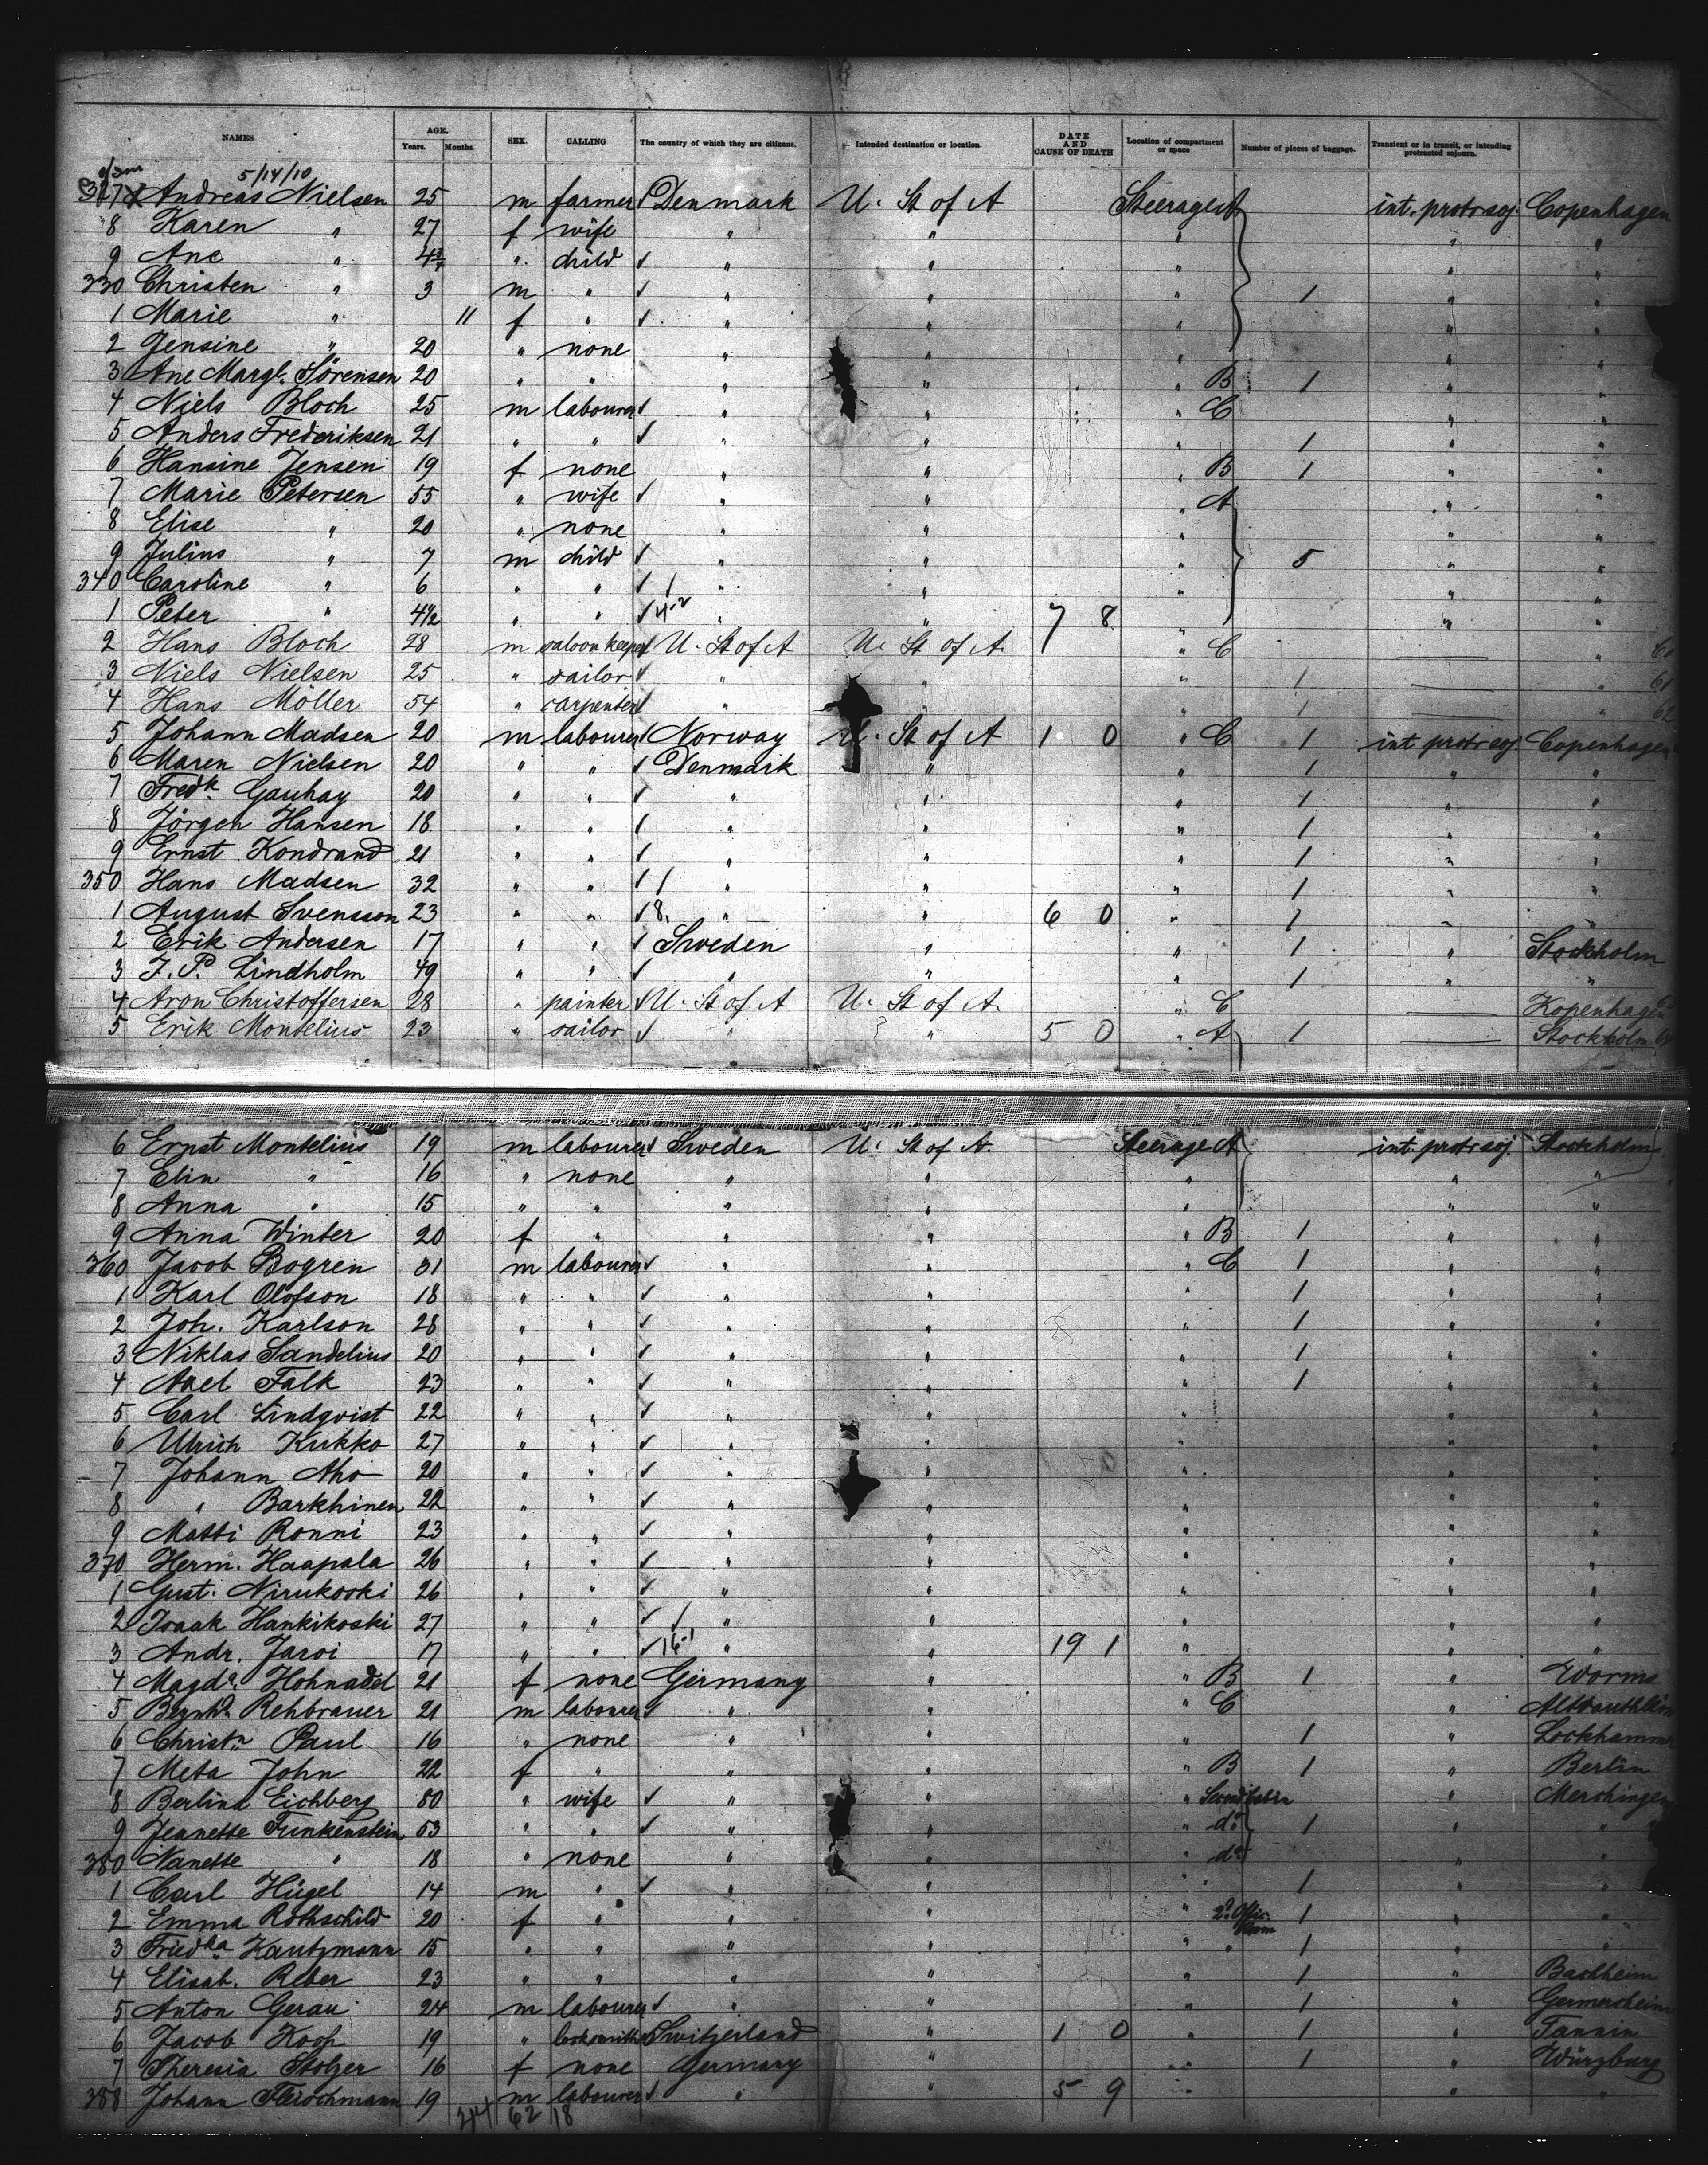 NAMES AGE. Years. Months. SEX. CALLING The country of which they are citizens. Intended destination or location. DATE AND CAUSE OF DEATH Location of compartment or space Number of pieces of baggage. Transient or in transit, or intending protracted sojourn.
5/14/10
327 Andreas Nielsen 25 m farmer Denmark U. St of A Steerage A int. protr soj. Copenhagen
8 Karen " 27 f wife " " " " "
9 Ane " 4¾ " child " " " " "
330 Christen " 3 m " " " " 1 " "
1 Marie " 11 f " " " " " "
2 Jensine " 20 " none " " " " "
3 Ane Margt. Sörensen 20 " " " " " B 1 " "
4 Niels Bloch 25 m labourer " " " C " "
5 Anders Frederiksen 21 " " " " " 1 " "
6 Hansine Jensen 19 f none " " " B 1 " "
7 Marie Petersen 55 " wife " " " A " "
8 Elise " 20 " none " " " " "
9 Julius " 7 m child " " " 5 " "
340 Caroline " 6 " " " " " " "
1 Peter " 4½ " " " " 7 8 " " "
2 Hans Bloch 28 m saloon keeper U. St of A U. St of A. " C "
3 Niels Nielsen 25 " sailor " " " 1 " 61
4 Hans Möller 54 " carpenter " " " 1 " 62
5 Johann Madsen 20 m labourer Norway U. St of A 1 0 " C 1 int protr soj. Copenhagen
6 Maren Nielsen 20 " " Denmark " " 1 " "
7 Fredk. Gauhay 20 " " " " " 1 " "
8 Jörgen Hansen 18 " " " " " 1 " "
9 Ernst Kondrand 21 " " " " " 1 " "
350 Hans Madsen 32 " " " " " 1 " "
1 August Svensson 23 " " 8 " " 6 0 " 1 " "
2 Erik Andersen 17 " " Sweden " " 1 " Stockholm
3 J. P. Lindholm 49 " " " " " 1 " "
4 Aron Christoffersen 28 " painter U. St of A U. St of A. " C Kopenhagen
5 Erik Montelius 23 " sailor " " 5 0 " A 1 Stockholm
6 Ernst Montelius 19 m labourer Sweden U. St of A. Steerage A int. protr soj. Stockholm
7 Elin " 16 " none " " " " "
8 Anna " 15 " " " " " " "
9 Anna Winter 20 f " " " " B 1 " "
360 Jacob Bogren 31 m labourer " " " C 1 " "
1 Karl Olofson 18 " " " " " 1 " "
2 Joh. Karlson 28 " " " " " 1 " "
3 Niklas Sandelius 20 " " " " " 1 " "
4 Axel Falk 23 " " " " " 1 " "
5 Carl Lindqvist 22 " " " " " " "
6 Ulrich Kukko 27 " " " " " " "
7 Johann Aho 20 " " " " " " "
8 " Barkhinen 22 " " " " " " "
9 Matti Ronni 23 " " " " " " "
370 Herm. Haapala 26 " " " " " " "
1 Gust. Nirukoski 26 " " " " " " "
2 Isaak Hankikoski 27 " " " " " " "
3 Andr. Jaroi 17 " " " " 19 1 " " "
4 Magda. Hohnadel 21 f none Germany " " B 1 " Worms
5 Rehbrauer 21 m labourer " " " C "
6 Christn. Paul 16 " none " " " 1 "
7 Meta John 22 f " " " " B 1 " Berlin
8 Berlina Eichberg 50 " wife " " " Second Cabin " Merchingen
9 Jeanette Funkenstein 53 " " " " " do 1 " "
380 Nanette " 18 " none " " " do " "
1 Carl Hügel 14 m " " " " 1 " "
2 Emma Rothschild 20 f " " " " 2d Offic. Room 1 " "
3 Friedka Kautzmann 15 " " " " " " 1 " "
4 Elisab. Reber 23 " " " " " 1 " Bachheim
5 Anton Gerau 24 m labourer " " " 1 " Germersheim
6 Jacob Koch 19 " locksmith Switzerland " 1 0 " 1 " Tannin
7 Theresia Stolzer 16 f none Germany " " 1 " Würzburg
388 Johann Fleischmann 19 m labourer " " 5 9 " " "
62 18